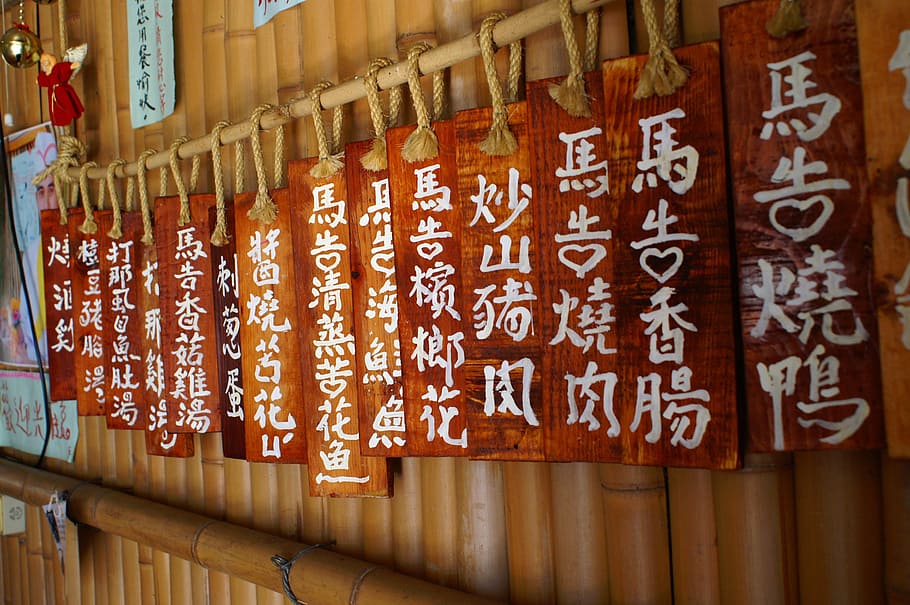 馬告燒鴨
馬告香腸
馬告燒肉
炒山豬肉
馬告檳榔花
馬告海鮮魚
馬告清蒸苦花魚
醬燒苦花魚
刺蔥蛋
馬告香菇雞湯
打那雞湯
打那虱目魚肚湯
樹豆豬腳湯
燒酒雞